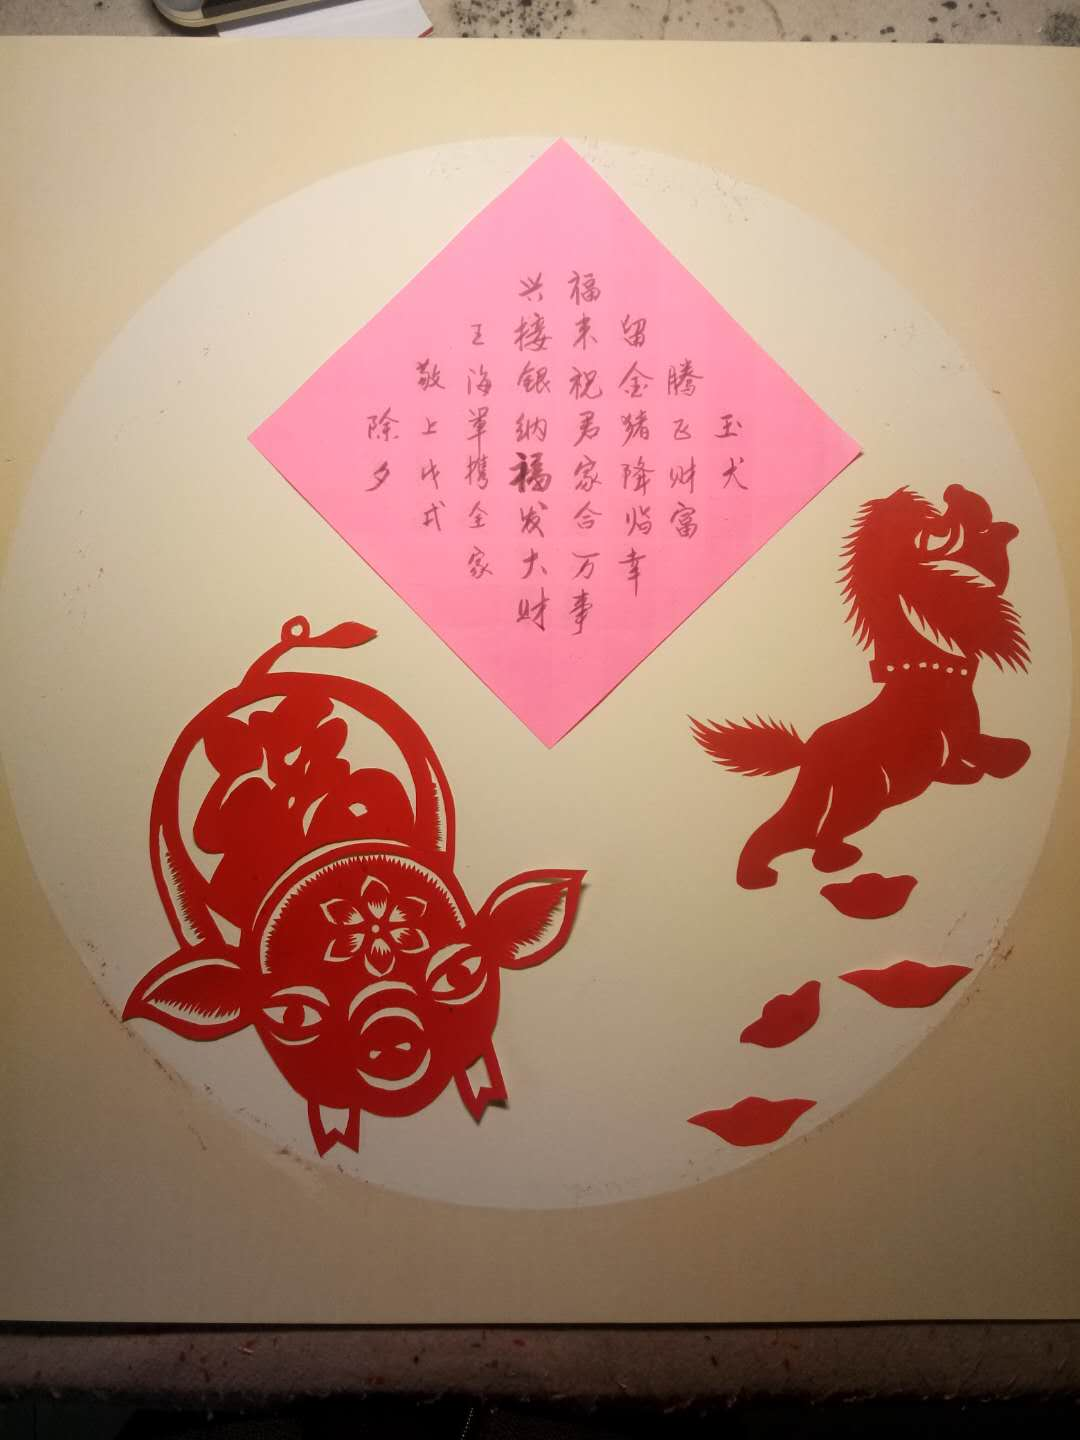 玉犬
腾飞财富
留金猪降临幸
福来祝君家合万事
兴接银纳福发大财
王海军携全家
敬上戊戌
除夕
福